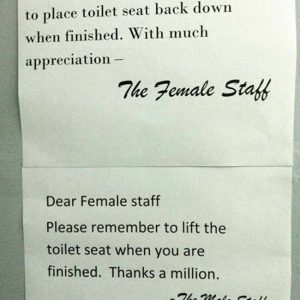 to place toilet seat back down
when finished. With much
appreciation –
The Female Staff
Dear Female staff
Please remember to lift the
toilet seat when you are
finished. Thanks a million.
-The Male Staff